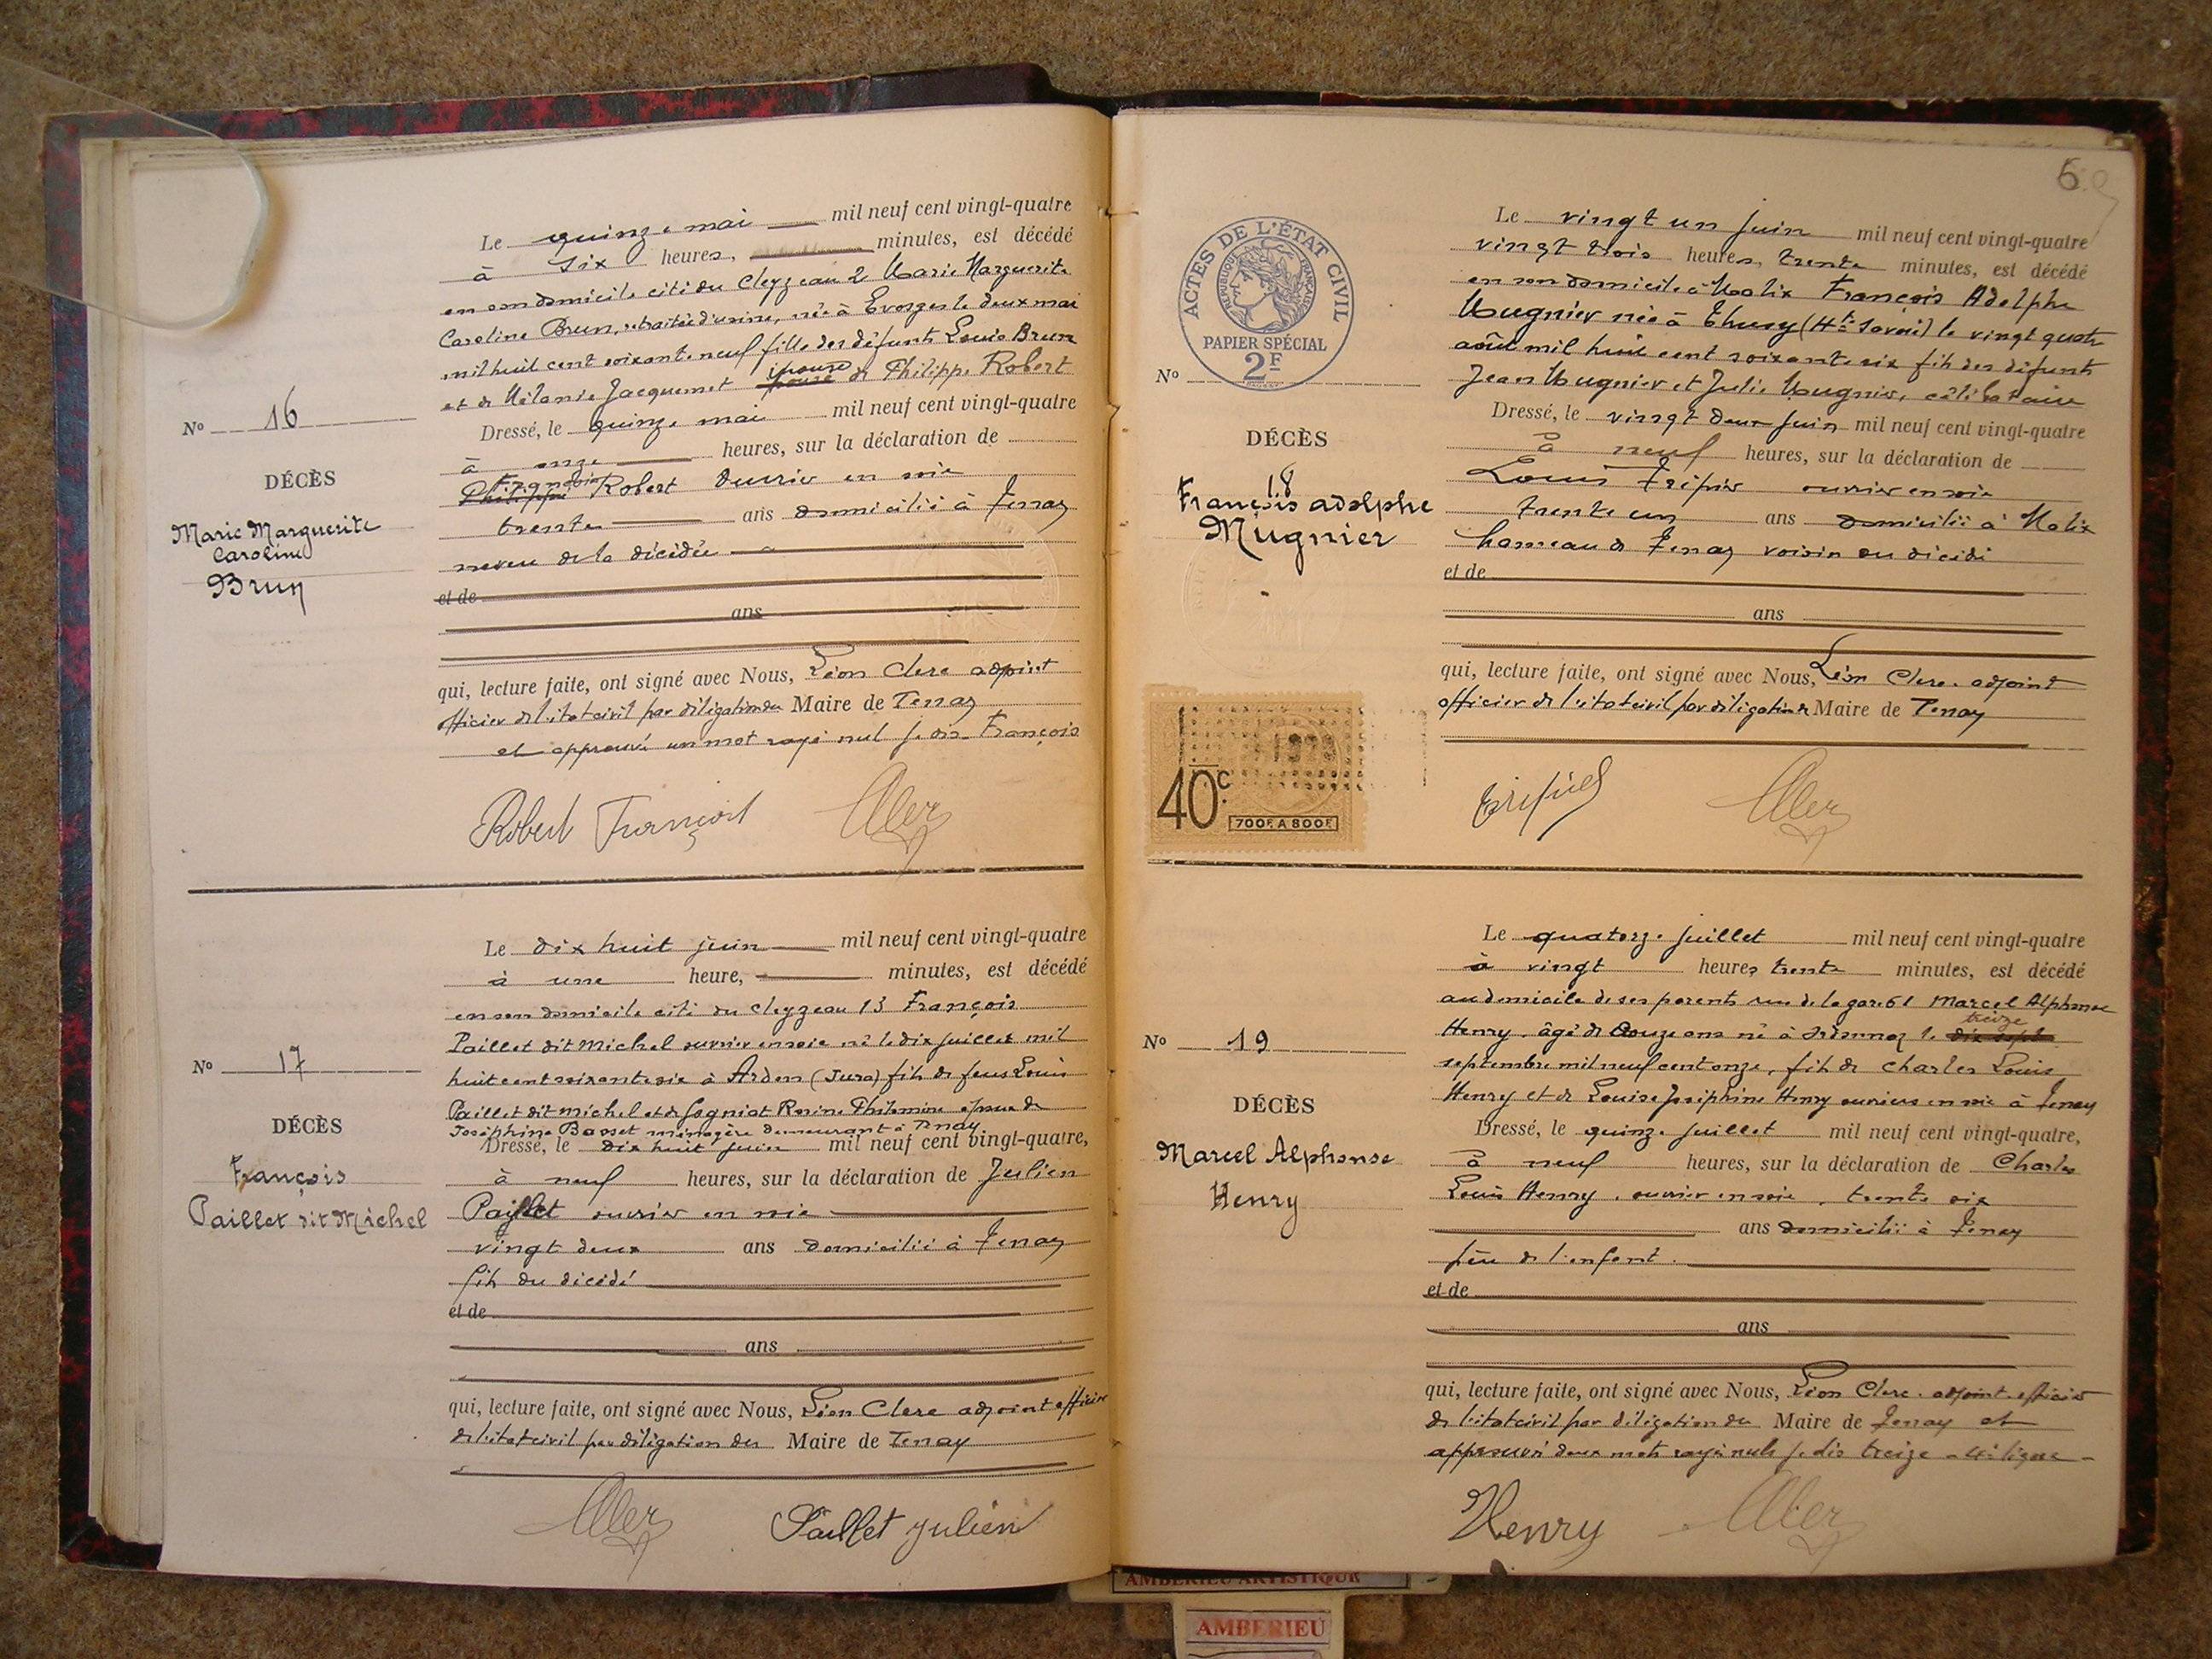 Le quinze mai mil neuf cent vingt-quatre
à six heures, minutes, est décédé
en son domicile cité du Cleyzeau 2 Marie Marguerite
Caroline Brun, retraitée d'usine, née à Evosges le deux mai
mil huit cent soixante neuf fille des défunts Louis Brun
et de Mélanie Jacquemet épouse de Philippe Robert
Nº 16
DÉCÈS
Marie Marguerite
Caroline
Brun
Dressé, le quinze mai mil neuf cent vingt-quatre
à onze heures, sur la déclaration de
François
Philippe Robert ouvrier en soie
trente ans domicilié à Tenay
neveu de la décédée
et de
ans
qui, lecture faite, ont signé avec Nous, Léon Clerc adjoint
officier de l'état civil par délégation du Maire de Tenay
et approuvé un mot rayé nul je dis François
Robert François Clerc
Le dix huit juin mil neuf cent vingt-quatre
à une heure, minutes, est décédé
en son domicile cité du Cleyzeau 13 François
Paillet dit Michel ouvrier en soie né le dix juillet mil
huit cent soixante six à Arden (Jura) fils de feus Louis
Paillet dit Michel et de Rosine Philomine époux de
Joséphine Basset ménagère demeurant à Tenay
Nº 17
DÉCÈS
François
Paillet dit Michel
Dressé, le dix huit juin mil neuf cent vingt-quatre,
à neuf heures, sur la déclaration de Julien
Paillet ouvrier en soie
vingt deux ans domicilié à Tenay
fils du décédé
et de
ans
qui, lecture faite, ont signé avec Nous, Léon Clerc adjoint officier
de l'état civil par délégation du Maire de Tenay
Clerc Paillet Julien
6
ACTES DE L'ÉTAT CIVIL
RÉPUBLIQUE FRANÇAISE
PAPIER SPÉCIAL
2F
Le vingt un juin mil neuf cent vingt-quatre
vingt trois heures, trente minutes, est décédé
en son domicile à Malix François Adolphe
Mugnier née à Thusy (Hte Savoie) le vingt quatre
août mil huit cent soixante six fils des défunts
Jean Mugnier et Julie Mugnier, célibataire
Nº
DÉCÈS
18
François adolphe
Mugnier
Dressé, le vingt deux juin mil neuf cent vingt-quatre
à neuf heures, sur la déclaration de
Louis Tripier ouvrier en soie
trente un ans domicilié à Malix
hameau de Tenay voisin du décédé
et de
ans
qui, lecture faite, ont signé avec Nous, Léon Clerc adjoint
officier de l'état civil par délégation du Maire de Tenay
40c
700F. A 800F.
Clerc
Le quatorze juillet mil neuf cent vingt-quatre
à vingt heures trente minutes, est décédé
au domicile de ses parents rue de la gare 61 Marcel Alphonse
treize
Henry, âgé de douze ans né à Ordonnaz le dix sept
septembre mil neuf cent onze, fils de Charles Louis
Henry et de Louise Joséphine Henry ouvriers en soie à Tenay
Nº 19
DÉCÈS
Marcel Alphonse
Henry
Dressé, le quinze juillet mil neuf cent vingt-quatre,
à neuf heures, sur la déclaration de Charles
Louis Henry, ouvrier en soie, trente six
ans domicilié à Tenay
père de l'enfant.
et de
ans
qui, lecture faite, ont signé avec Nous, Léon Clerc adjoint officier
de l'état civil par délégation du Maire de Tenay et
approuvé deux mots rayés nuls je dis treize - 4e ligne -
Henry Clerc
AMBERIEU ARTISTIQUE
AMBERIEU